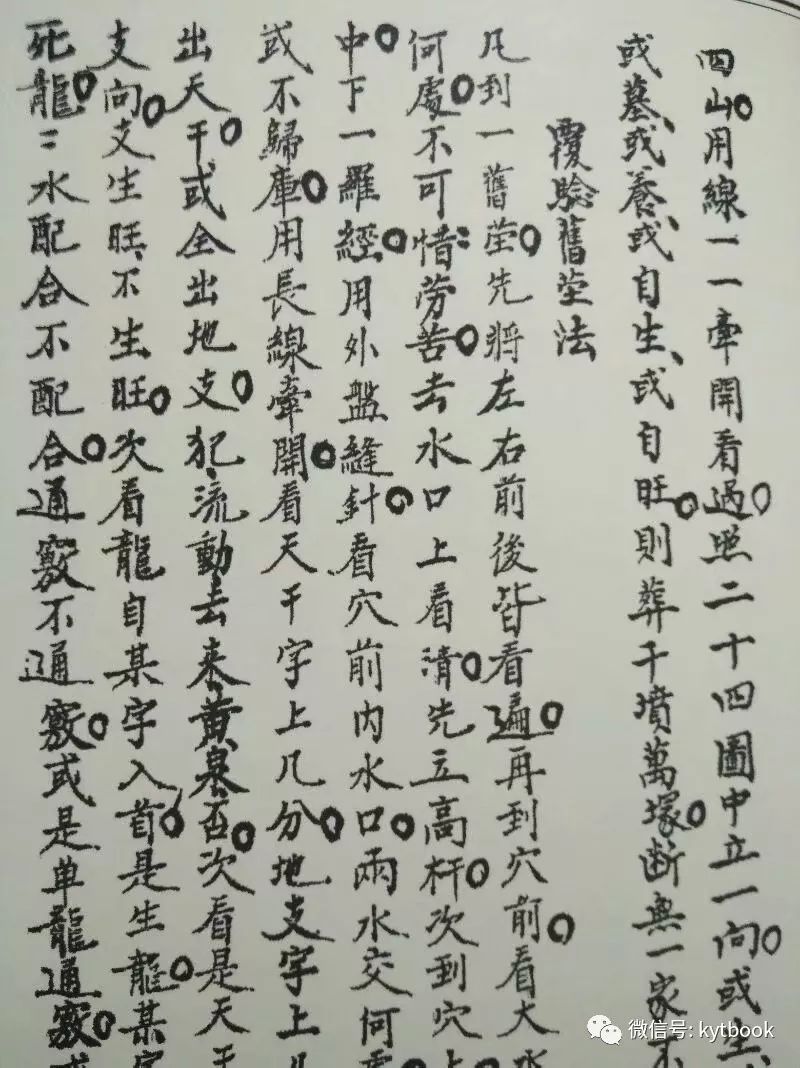 四山。用線一一牽開看過。照二十四圖中立一向。或生、
或墓、或養、或自生、或自旺。則葬千墳萬塚。斷無一家不
覆驗舊塋法
凡到一舊塋。先將左右前後皆看遍。再到穴前。看大水
何處。不可惜勞苦。去水口上看清。先立高杆。次到穴上
中。下一羅經。用外盤縫針。看穴前內水口。兩水交何
或不歸庫。用長線牽開。看天干字上几分。地支字上几
出天干。或全出地支。犯、流動去來、黃泉否。次看是天干
支向。支生旺、不生旺。次看龍自某字入首。是生龍。某字
死龍。二水配合不配合。通竅不通竅。或是单龍通竅。或
微信号: kytbook